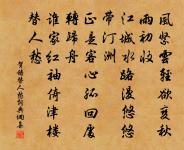 風緊雲輕欲變秋
雨初收
江城水路漫悠悠
帶汀洲
正是客心孤回處
轉歸舟
誰家紅袖倚津樓
替人愁
賀鑄替人愁詞